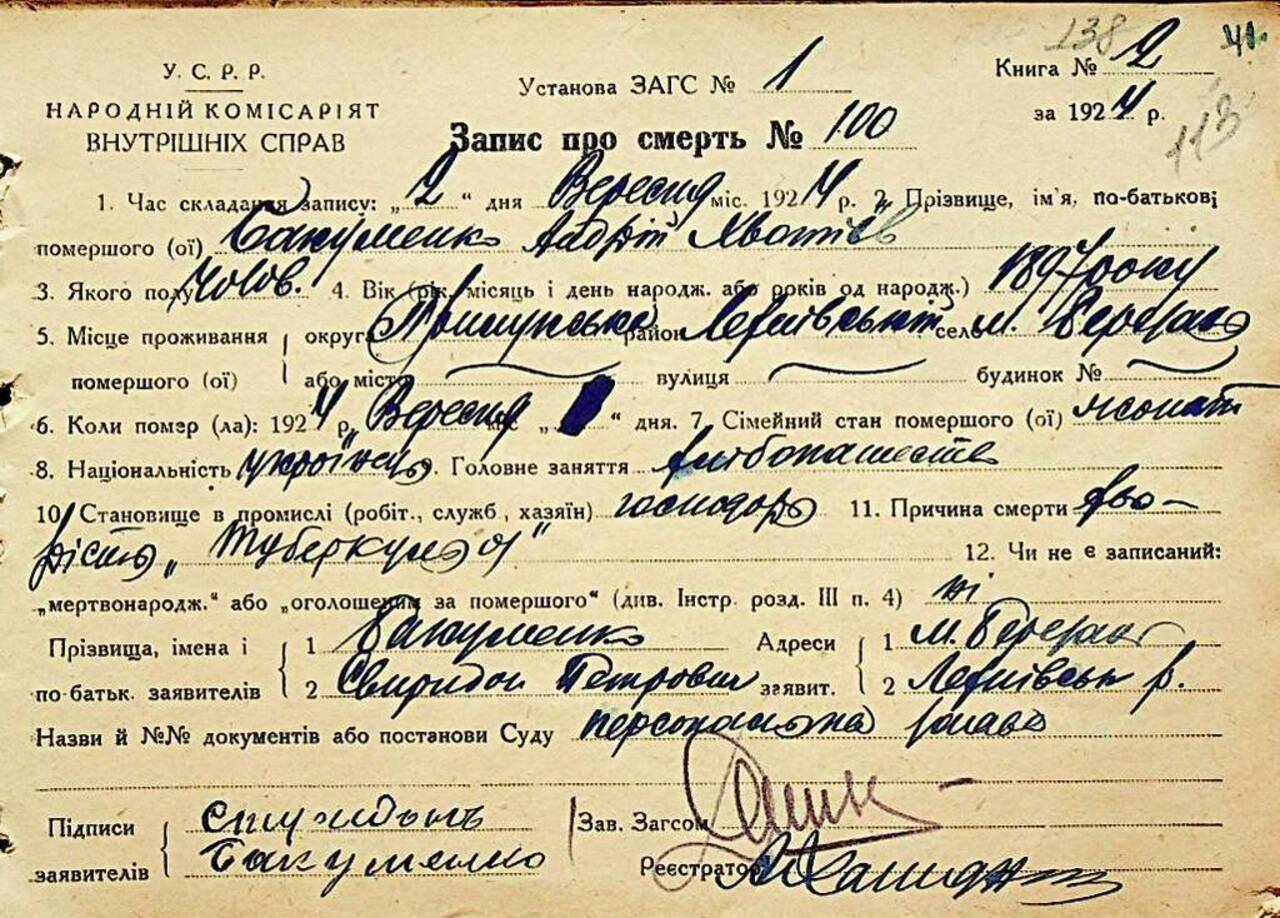 138 41.
У. С. Р. Р.
НАРОДНІЙ КОМІСАРІЯТ
ВНУТРІШНІХ СПРАВ
Установа ЗАГС № 1
Книга № 2
за 1924 р.
113
Запис про смерть № 100
1. Час складання запису: „2“ дня Вересня міс. 1924 р. 2. Прізвище, ім'я, по-батькові
помершого (ої) Бакуменко Андрій
3. Якого полу Чолов. 4. Вік (рік, місяць і день народж. або років од народж.) 1897 року
5. Місце проживання округа район село м. Березань
помершого (ої) або місто вулиця будинок №
6. Коли помер (ла): 1924 р. Вересня міс „ “ дня. 7. Сімейний стан помершого (ої) жонат
8. Національність українець 9. Головне заняття хлібопашество
10. Становище в промислі (робіт., служб., хазяїн) господарь 11. Причина смерти
„Туберкульоз“ 12. Чи не є записаний:
„мертвонародж.“ або „оголошеним за помершого“ (див. Інстр. розд. III п. 4) ні
Прізвища, імена і 1 Бакуменко Адреси 1 м. Березань
по-батьк. заявителів 2 Свиридон Петрович заявит. 2 р.
Назви й №№ документів або постанови Суду персональна заява
Підписи
заявителів Бакуменко
Зав. Загсом
Реєстратор